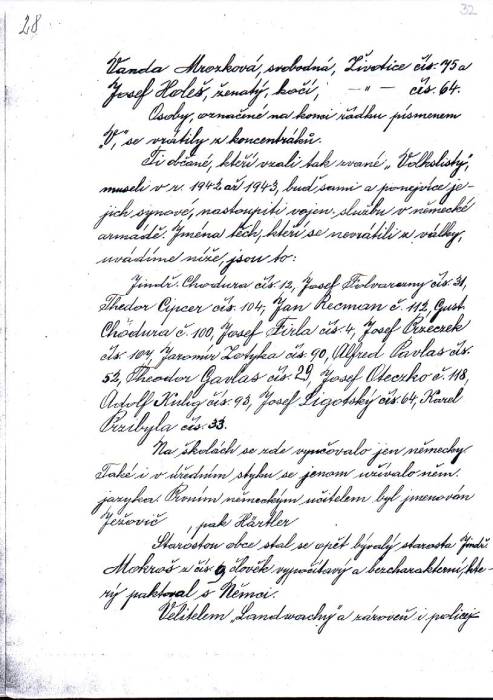 28
32
Vanda Mrozková, svobodná, Životice čís. 75a
Josef Holeš, ženatý, kočí, —„— čís. 64.
Osoby, označené na konci řádku písmenem
„V“, se vrátily z koncentráků.
Ti občané, kteří vzali tak zvané „Volkslisty“,
museli v r. 1942 až 1943, buď sami a ponejvíce je-
jich synové, nastoupiti vojen. službu v německé
armádě. Jména těch, kteří se nevrátili z války,
uvádíme níže, jsou to:
Jindř. Chodura čís. 12, Josef Folvarczny čís. 31,
Thedor Cypcer čís. 104, Jan Recman č. 112, Gust.
Chodura č. 100, Josef Firla čís. 4, Josef Przeczek
čís. 107, Jaromír Lotyka čís. 90, Alfred Pavlas čís.
52, Theodor Gavlas čís. 29, Josef Oteczko č. 118,
Adolf Kulig čís. 93, Josef Ligotský čís. 64, Karel
Przibyla čís. 33.
Na školách se zde vyučovalo jen německy.
Také i v úředním styku se jenom užívalo něm.
jazyka. Prvním německým učitelem byl jmenován
Ježovič , pak Härtler
Starostou obce stal se opět bývalý starosta Jindř.
Mokroš z čís. 9 člověk vypočítavý a bezcharakterní, kte-
rý paktoval s Němci.
Velitelem „Landwachy“ a zároveň i policej-